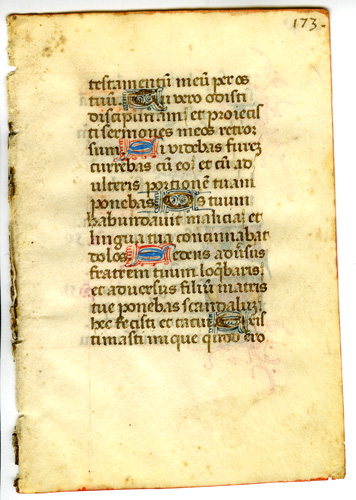 173.
testamentū meū per os
tuū. Tu vero odisti
disciplinam: et proiecis
ti sermones meos retror
sum. Si videbas furez
currebas cū eo: et cū ad
ulteris portionē tuam
ponebas. Os tuum
habundavit malicia: et
lingua tua concinnabat
dolos. Sedens adūsus
fratrem tuum loq̄baris
et adversus filiū matris
tue ponebas scandaluz:
hec fecisti et tacui. Exis
timasti inique quod ero